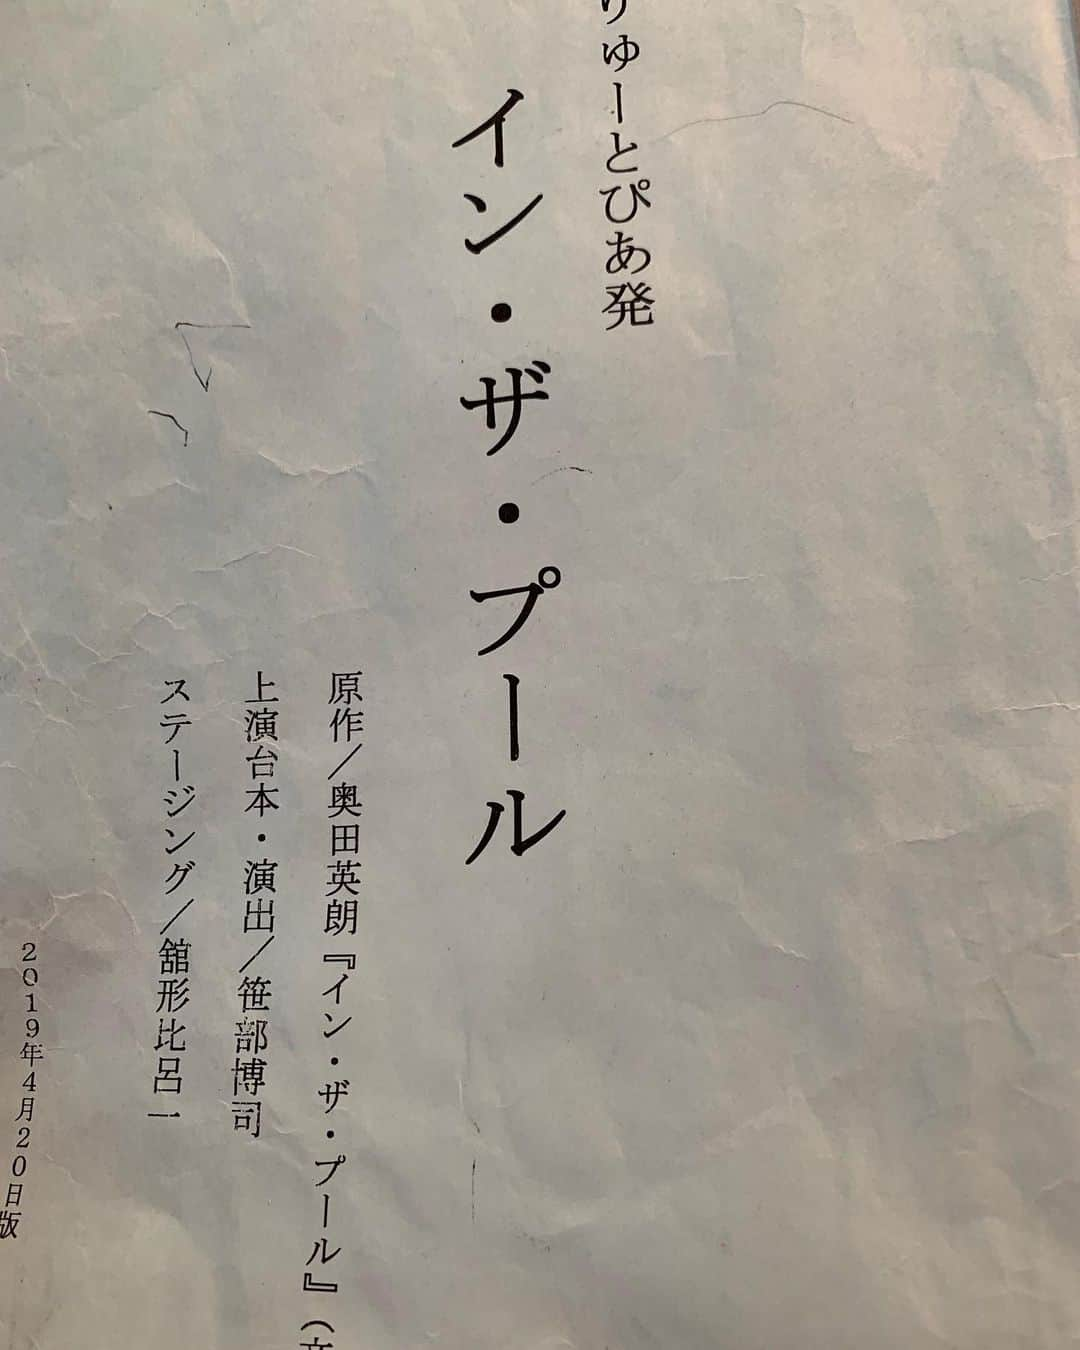 りゅーとぴあ発
イン・ザ・プール
原作／奥田英朗『イン・ザ・プール』（
上演台本・演出／笹部博司
ステージング／舘形比呂一
2019年4月20日版